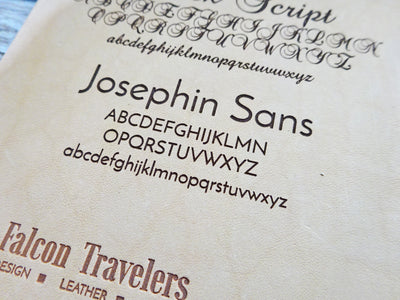 Script
ABCDEFGHIJKLMN
OPQRSTUVWXYZ
abcdefghijklmnopqrstuvwxyz
Josephin Sans
ABCDEFGHIJKLMN
OPQRSTUVWXYZ
abcdefghijklmnopqrstuvwxyz
Falcon Travelers
DESIGN ■ LEATHER ■